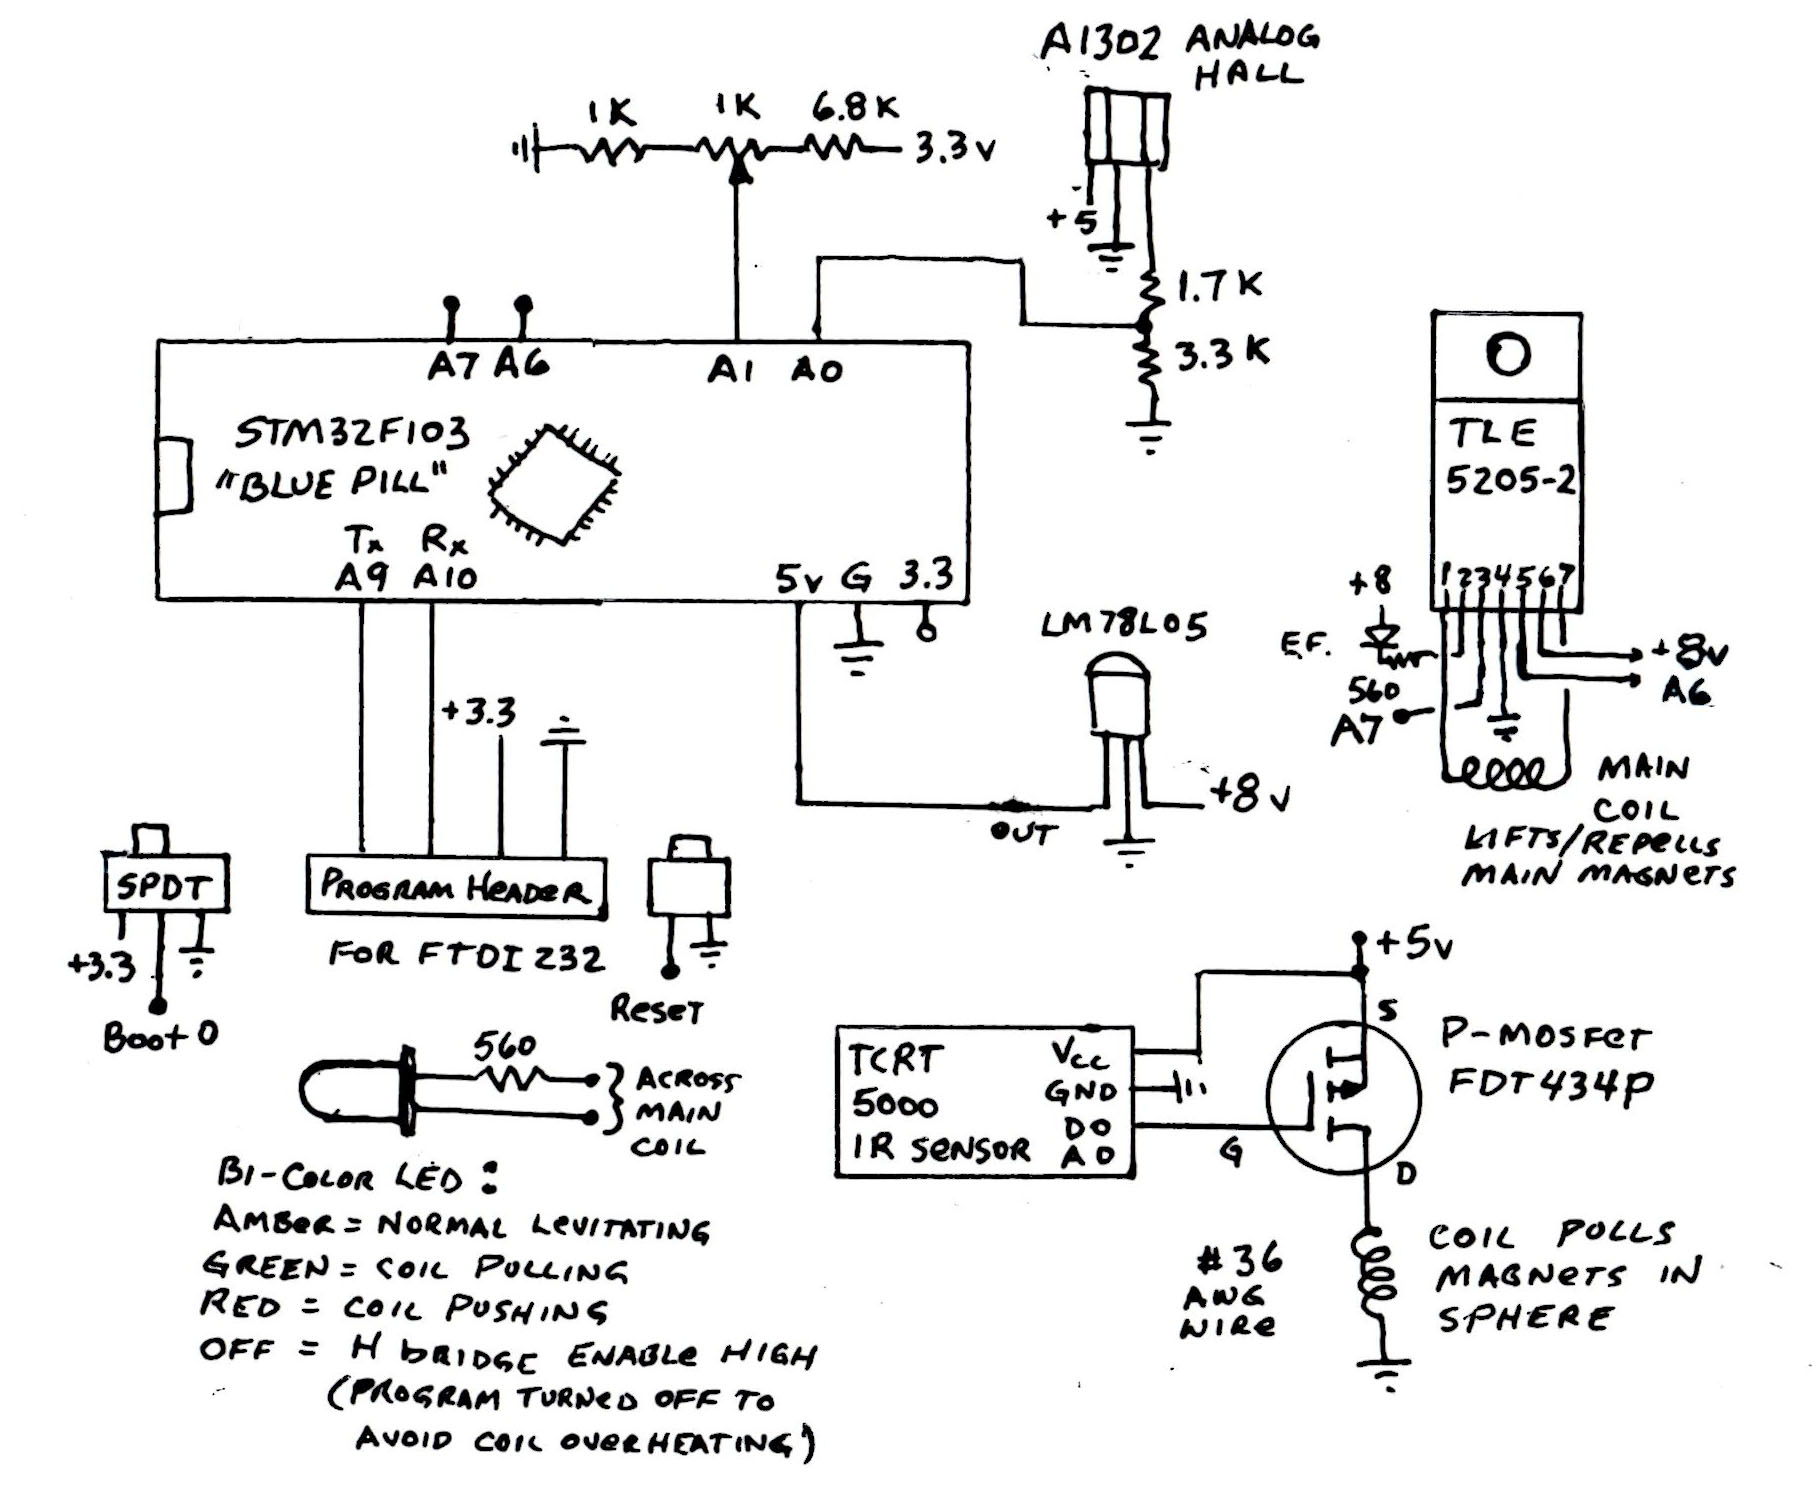 A1302 ANALOG
HALL
1K 1K 6.8K
3.3v
+5
1.7K
3.3K
A7 A6 A1 A0
STM32F103
"BLUE PILL"
Tx Rx
A9 A10
5v G 3.3
TLE
5205-2
1234567
+8
E.F.
560
A7
+8v
A6
MAIN
COIL
LIFTS/REPELLS
MAIN MAGNETS
LM78L05
+8v
OUT
+3.3
SPDT
+3.3
Boot 0
PROGRAM HEADER
FOR FTDI 232
Reset
560
ACROSS
MAIN
COIL
BI-COLOR LED:
AMBER = NORMAL LEVITATING
GREEN = COIL PULLING
RED = COIL PUSHING
OFF = H BRIDGE ENABLE HIGH
(PROGRAM TURNED OFF TO
AVOID COIL OVERHEATING)
+5v
S
P-MOSFET
FDT434P
TCRT
5000
IR SENSOR
Vcc
GND
DO
AO
G
D
#36
AWG
WIRE
COIL PULLS
MAGNETS IN
SPHERE